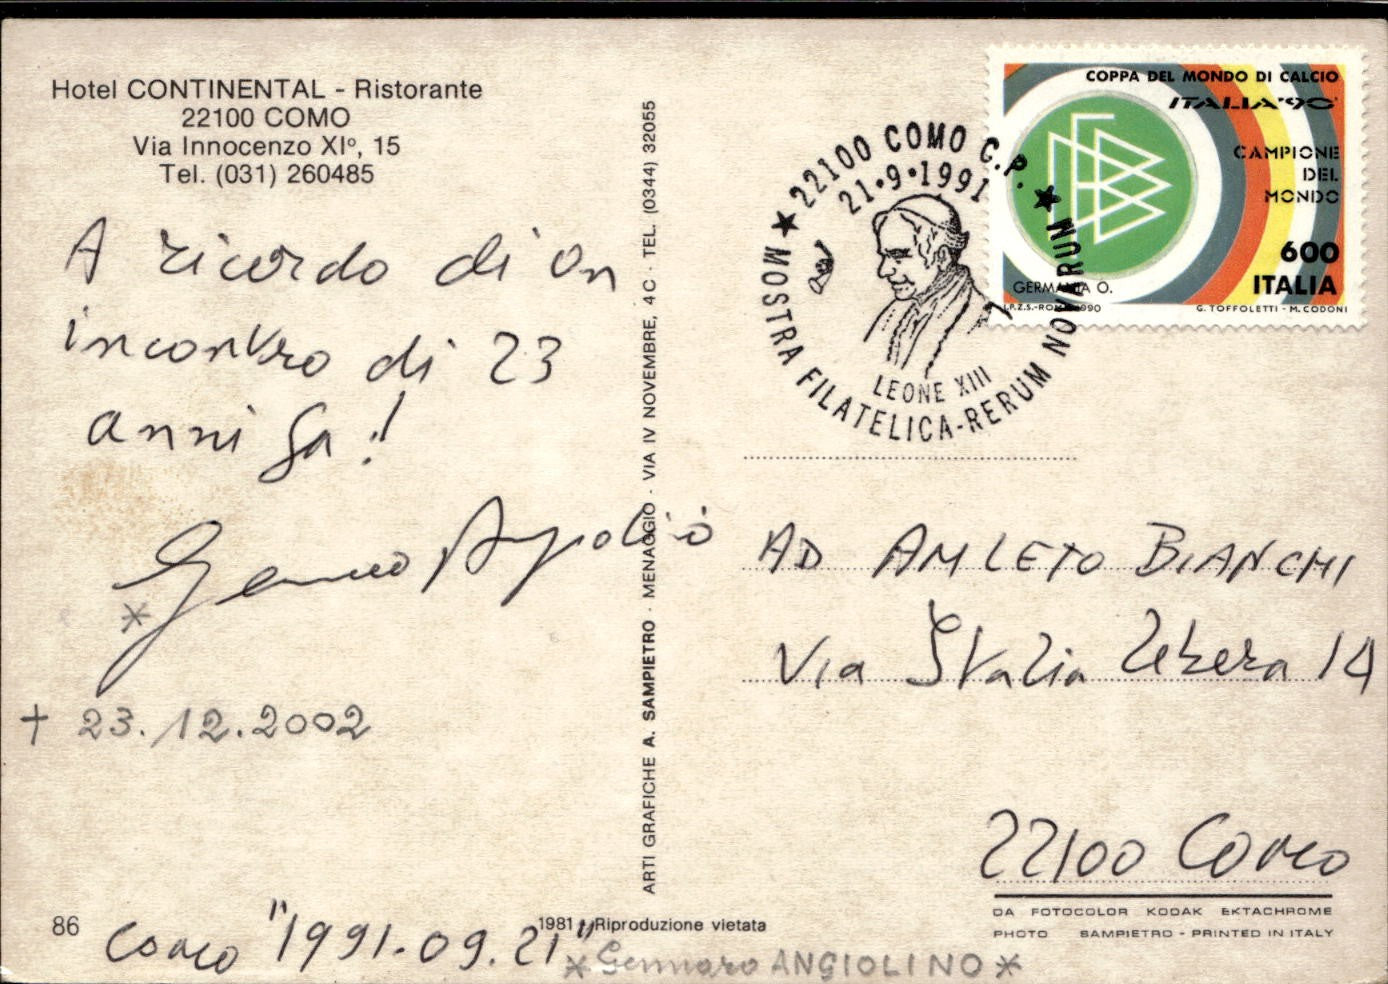 Hotel CONTINENTAL - Ristorante
22100 COMO
Via Innocenzo XIº, 15
Tel. (031) 260485
A ricordo di un
incontro di 23
anni fa!
*
+ 23.12.2002
86
Como "1991.09.21"
*Gennaro ANGIOLINO*
1981 - Riproduzione vietata
ARTI GRAFICHE A. SAMPIETRO · MENAGGIO · VIA IV NOVEMBRE, 4C · TEL. (0344) 32055
★ 22100 COMO C.P. ★
21·9·1991
LEONE XIII
MOSTRA FILATELICA-RERUM NOVARUM
COPPA DEL MONDO DI CALCIO
ITALIA '90
CAMPIONE
DEL
MONDO
600
ITALIA
GERMANIA O.
I.P.Z.S.-ROMA-1990
G. TOFFOLETTI - M. CODONI
AD AMLETO BIANCHI
Via Italia Libera 14
22100 Como
DA FOTOCOLOR KODAK EKTACHROME
PHOTO SAMPIETRO - PRINTED IN ITALY